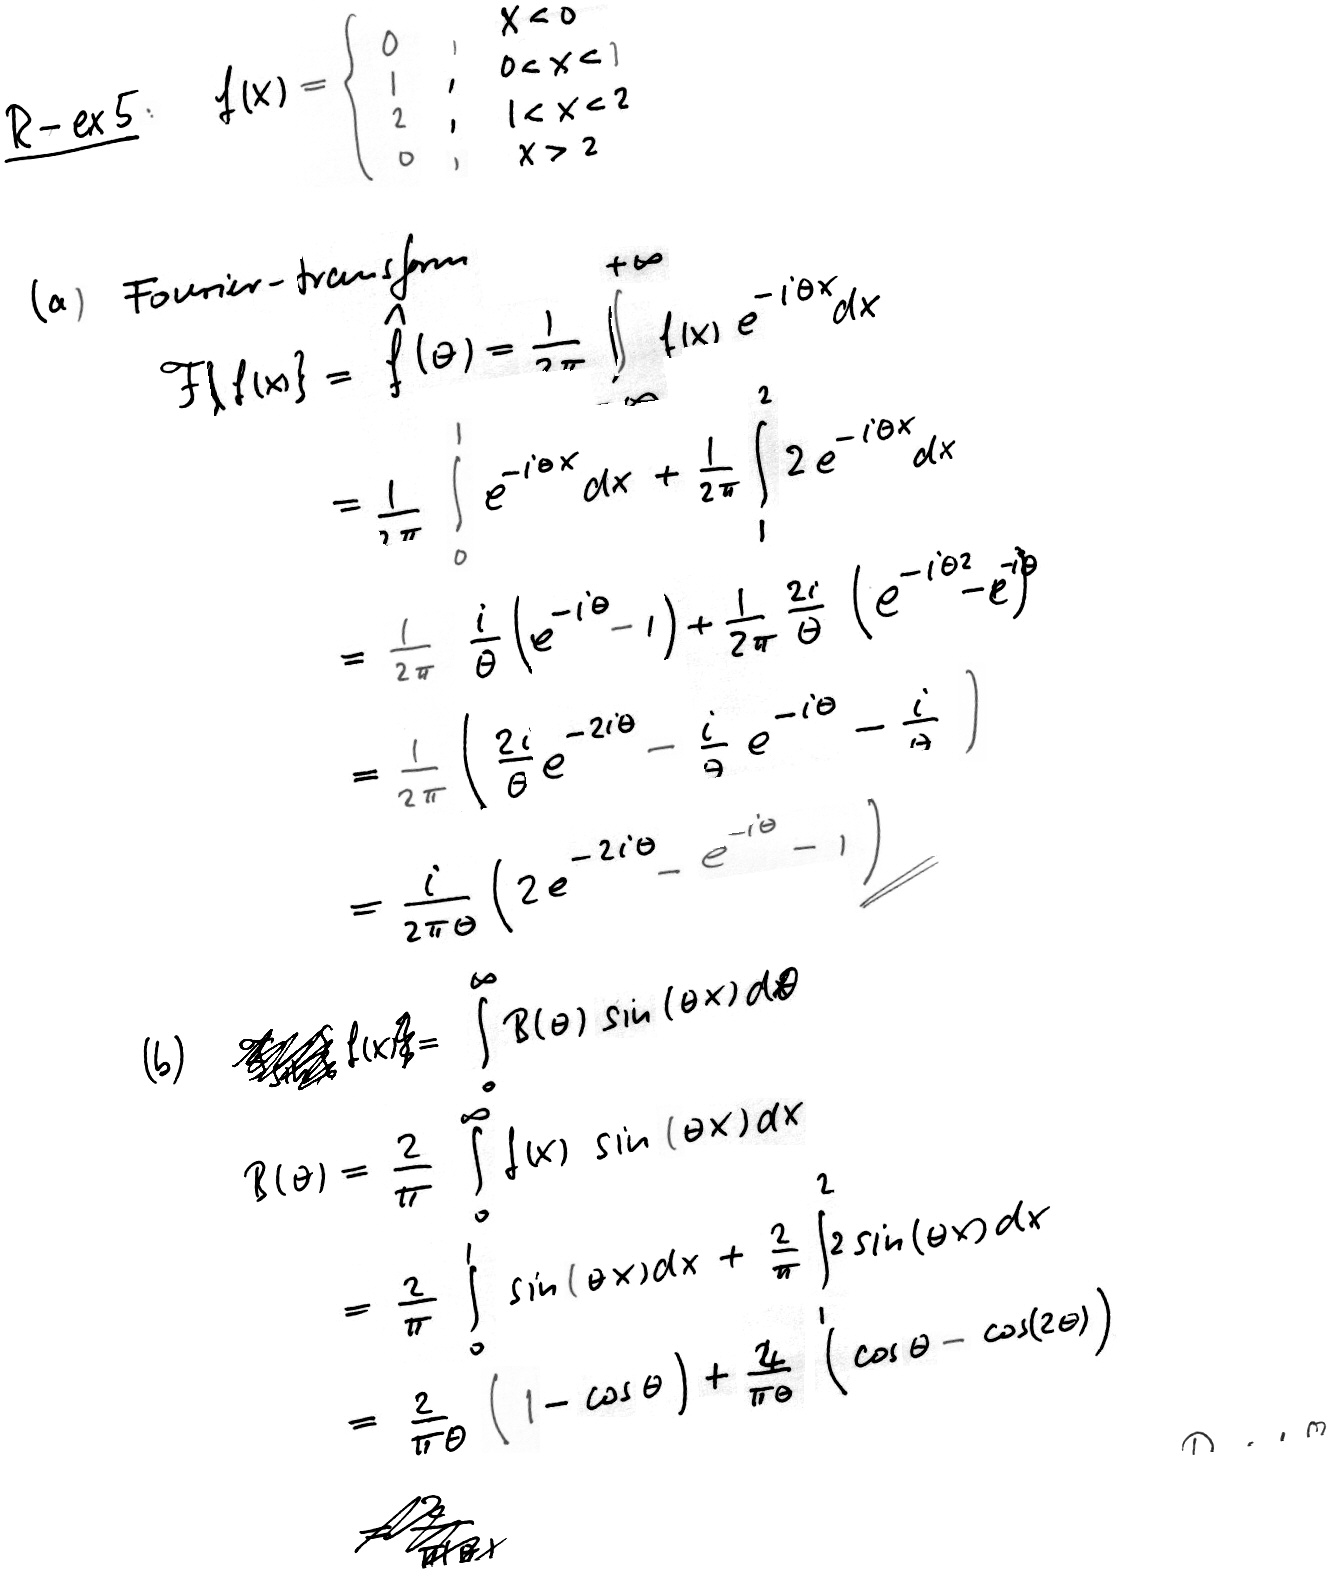 R-ex5: f(x) = { 0 , x<0
1 , 0<x<1
2 , 1<x<2
0 , x>2
(a) Fourier-transform
F{f(x)} = f̂(θ) = 1/2π ∫_{-∞}^{+∞} f(x) e^{-iθx} dx
= 1/2π ∫_0^1 e^{-iθx} dx + 1/2π ∫_1^2 2e^{-iθx} dx
= 1/2π i/θ (e^{-iθ} - 1) + 1/2π 2i/θ (e^{-iθ2} - e^{-iθ})
= 1/2π (2i/θ e^{-2iθ} - i/θ e^{-iθ} - i/θ)
= i/2πθ (2e^{-2iθ} - e^{-iθ} - 1)
(b) f(x) = ∫_0^∞ B(θ) sin(θx) dθ
B(θ) = 2/π ∫_0^∞ f(x) sin(θx) dx
= 2/π ∫_0^1 sin(θx) dx + 2/π ∫_1^2 2 sin(θx) dx
= 2/πθ (1 - cosθ) + 4/πθ (cosθ - cos(2θ))